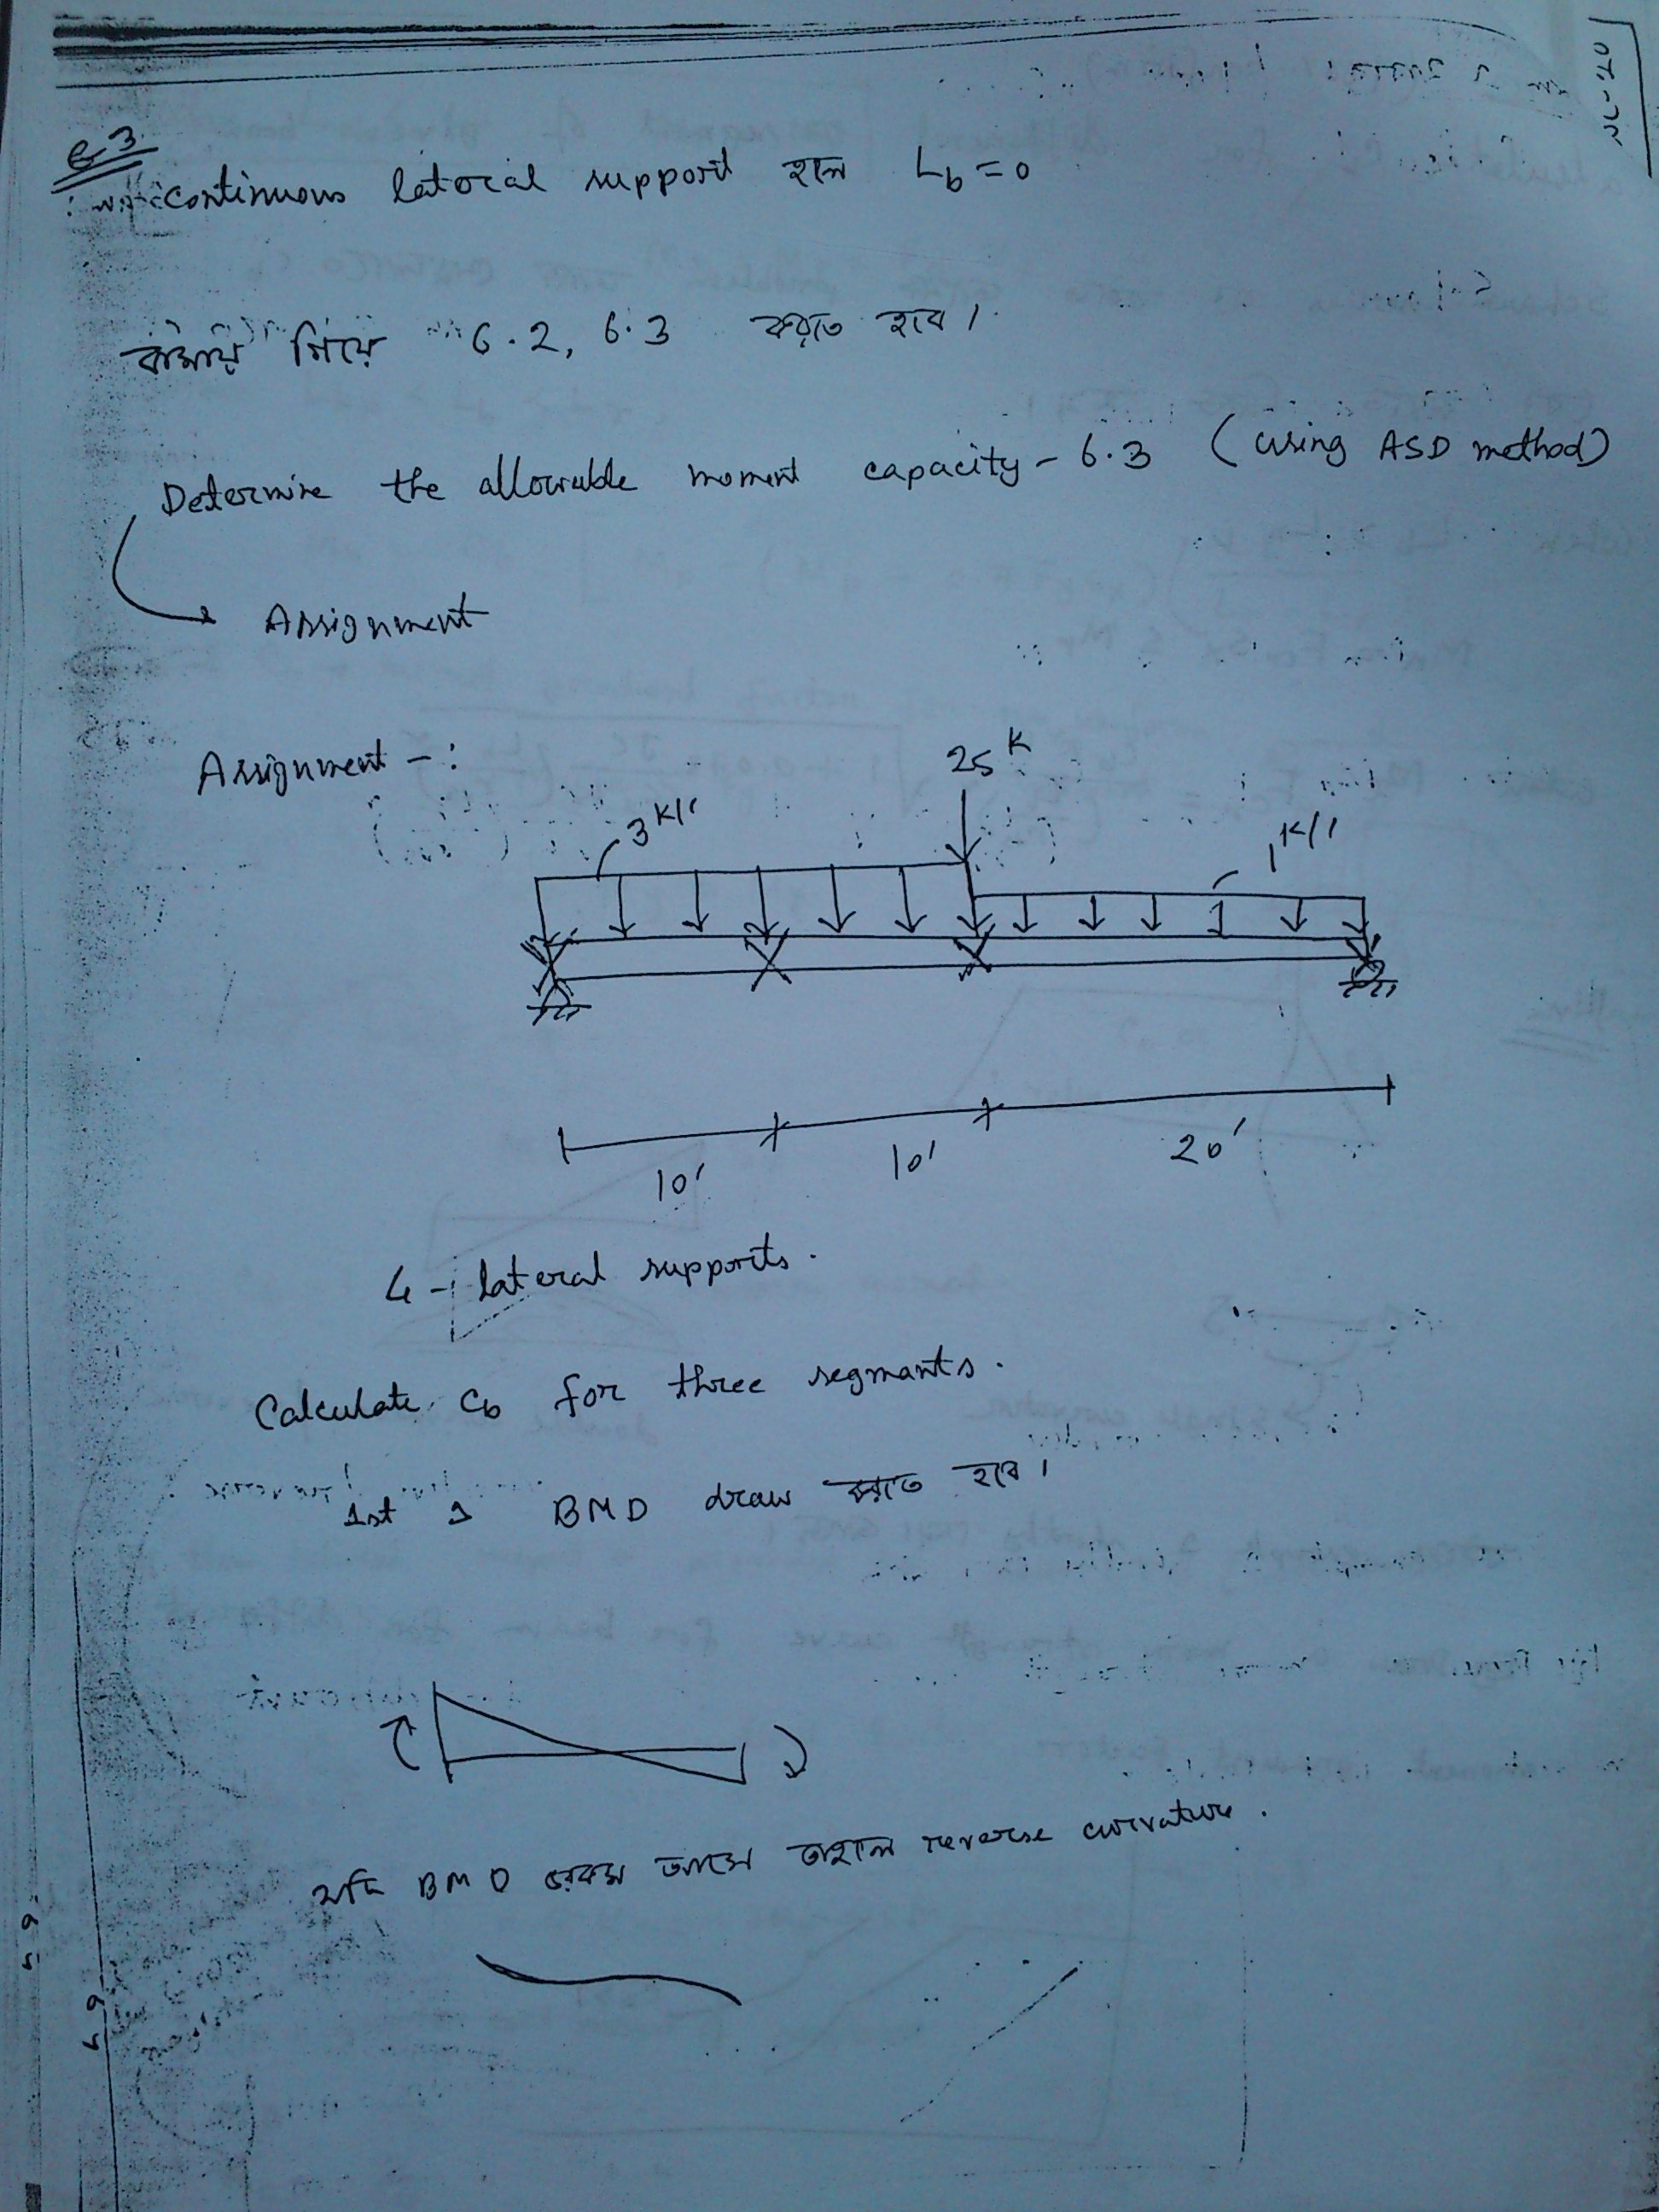 continuous lateral support হলে Lb = 0
বাসায় গিয়ে 6.2, 6.3 করতে হবে।
Determine the allowable moment capacity - 6.3 (using ASD method)
Assignment
Assignment - :
25 K
3 K/'
1 K/'
10' 10' 20'
4 - lateral supports.
Calculate Cb for three segmants.
1st এ BMD draw করতে হবে।
যদি BMD এরকম আসে তাহলে reverse curvature.